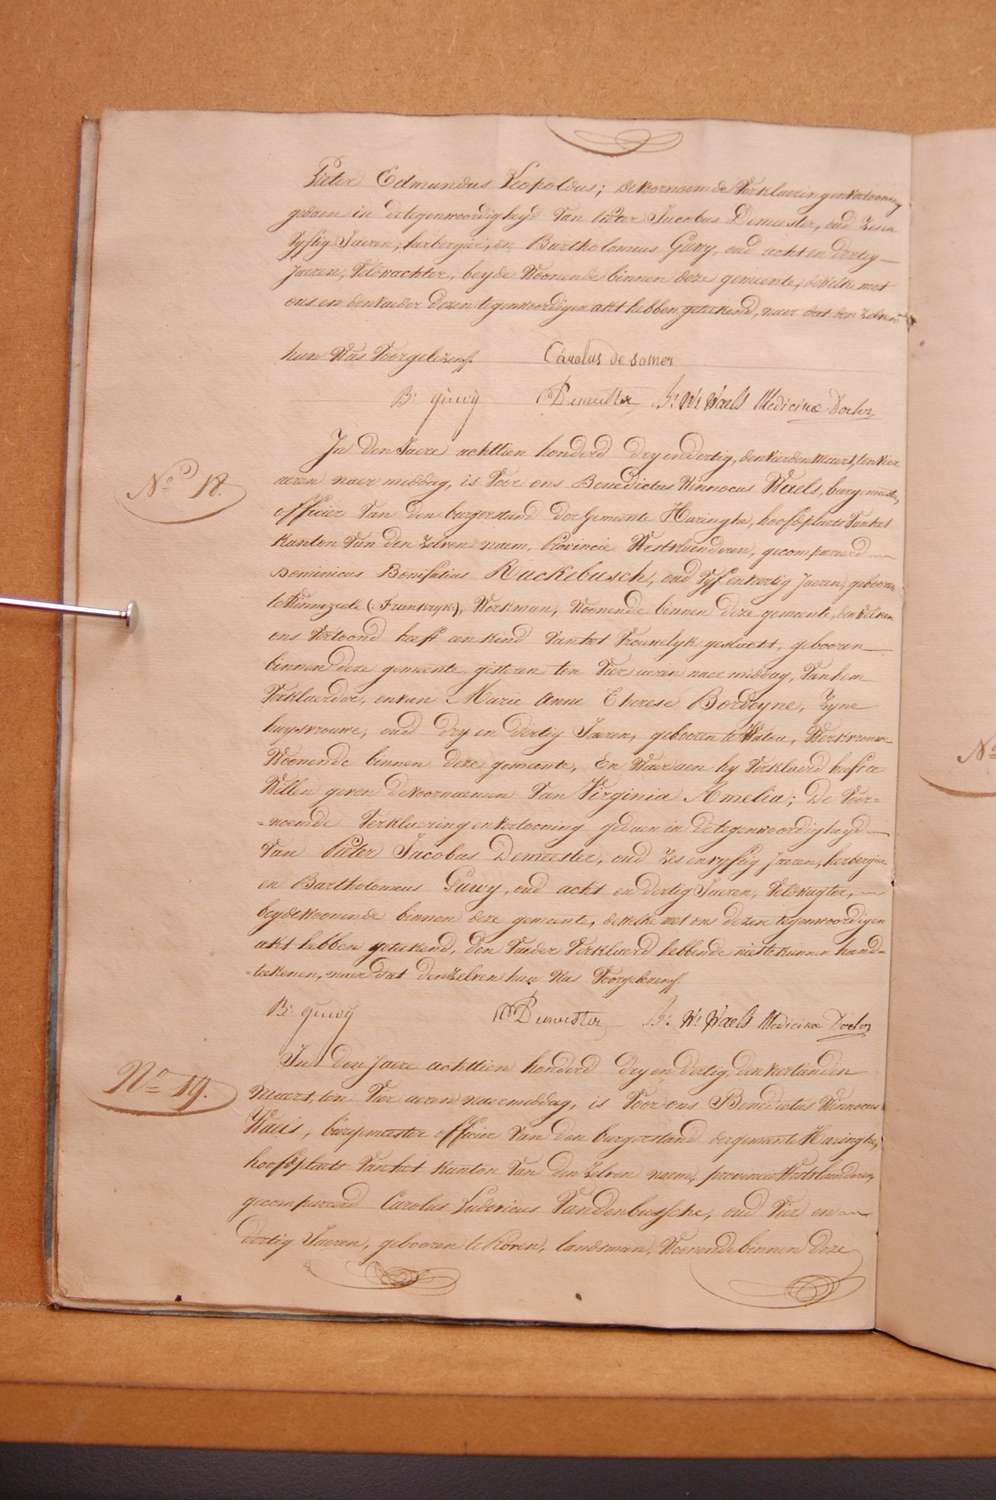 Pieter Edmundus Leopoldus; de voornoemde Verklaering en vertooning
gedaen in de tegenwoordigheyd van Pieter Jacobus Demeester, oud zes en
vyftig Jaeren, herbergier, en Bartholomeus Guwy, oud acht en dertig
Jaeren, veldwachter, beyde Woonende binnen deze gemeente, dewelke met
ons en den vaeder dezen tegenwoordigen akt hebben geteekend, naer dat den zelven
hun Was Voorgelezen.
Carolus de somer
B: guwy PJ Demeester B: W: Waels Medicinæ Doctor
N.o 18.
In den Jaere achttien honderd dry en dertig, den eersten maert, ten vier
ueren naer middag, is Voor ons Benedictus Winnocus Waels, burgemeester,
officier Van den burgerstand der Gemeente Haringhe, hoofdplaets Van het
Kanton Van den Zelven naem, Provincie Westvlaenderen, gecompareerd
Dominicus Bonifatius Ruckebusch, oud vyf en dertig Jaeren, gebooren
te Winnezeele (: Frankryk), Werkman, Woonende binnen deze gemeente, den welken
ons Vertoond heeft een kind Van het Vrouwelyk geslacht, gebooren
binnen deze gemeente gisteren ten Vier ueren naer middag, Van hem
Verklaerder, en van Marie Anne Therese Bordeyne, Zyne
huysvrouwe, oud dry en dertig Jaeren, gebooren te Watou, Werkvrouw
Woonende binnen deze gemeente, En Waer aen hy Verklaerd heeft te
Willen geven de Voornaemen Van Virginia Amelia; De Voor-
-noemde Verklaering en vertooning gedaen in de tegenwoordigheyd
Van Pieter Jacobus Demeester, oud zes en vyftig Jaeren, herbergier
en Bartholomeus Guwy, oud acht en dertig Jaeren, Veldwagter,
beyde Woonende binnen deze gemeente, dewelke met ons dezen tegenwoordigen
akt hebben geteekend, den Vaeder Verklaerd hebbende niet te kunnen hand-
-teekenen, naer dat den zelven hun Was Voorgelezen.
B: guwy PJ Demeester B: W: Waels Medicinæ Doctor
N.o 19.
In den Jaere achttien honderd dry en dertig, den eersten
maert, ten Vier ueren naermiddag, is Voor ons Benedictus Winnocus
Waels, burgemeester officier Van den burgerstand der gemeente Haringhe,
hoofdplaets Van het kanton Van den Zelven naem, provincie Westvlaenderen,
gecompareerd Carolus Ludovicus Vandenbussche, oud Vier en
dertig Jaeren, gebooren te landsman, Woonende binnen deze